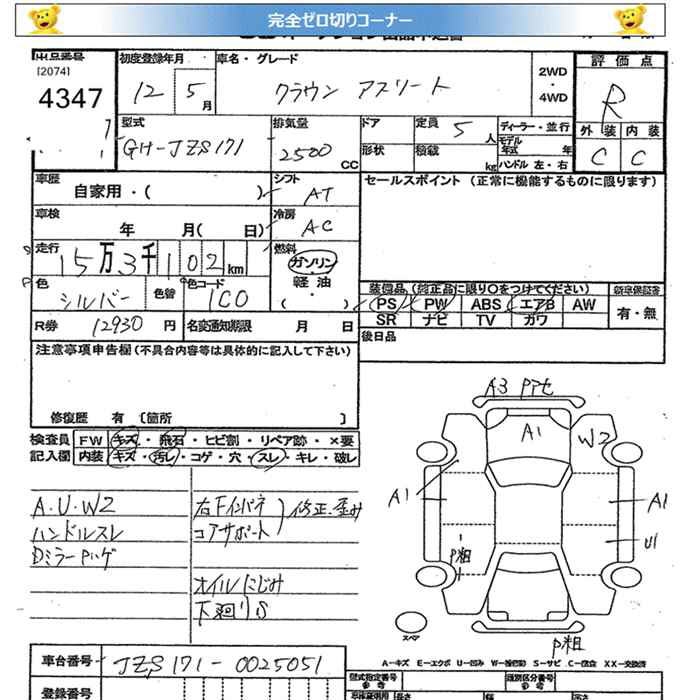 完全ゼロ切りコーナー
出品番号
[2074]
4347
初度登録年月
12 5 月
車名・グレード
クラウン アスリート
2WD
・
4WD
評価点
R
外装 内装
C C
型式
GH-JZS171
排気量
2500 CC
ドア
形状
定員 5 人
積載 kg
ディーラー・並行
モデル年式 年
ハンドル 左・右
車歴
自家用・( )
シフト
AT
車検
年 月( 日)
冷房
AC
走行
15万3千102km
燃料
ガソリン
・
軽油
・
( )
色
シルバー
色替
色コード
1C0
R券 12930 円
名変通知期限 月 日
セールスポイント (正常に機能するものに限ります)
装備品 (純正品に限り○をつけてください)
PS PW ABS エアB AW
SR ナビ TV カワ
新車保証書
有・無
後日品
注意事項申告欄(不具合内容等は具体的に記入して下さい)
修復歴 有 〔箇所 〕
検査員記入欄
FW キズ・飛石・ヒビ割・リペア跡・×要
内装 キズ・汚レ・コゲ・穴・スレ・キレ・破レ
A.U.W2
ハンドルスレ
Dミラーハゲ
右Fインパネ
コアサポート
修正、歪み
オイルにじみ
下廻りS
A3 Pアセ
A1
W2
A1
A1
U1
P粗
P粗
スペア
A-キズ E-エクボ U-凹み W-補修跡 S-サビ C-腐食 XX-交換済
車台番号 JZS171-0025051
登録番号
型式指定番号
類別区分番号
参考
参考
長さ